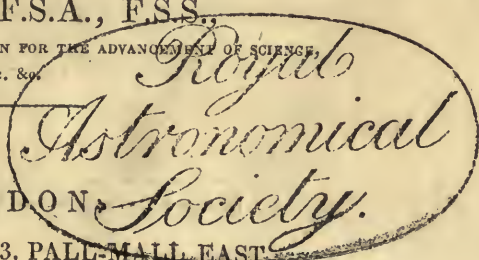 F.S.A., F.S.S.,
N FOR THE ADVANCEMENT OF SCIENCE,
&c.
Royal
Astronomical
DON
Society.
3. PALL-MALL EAST